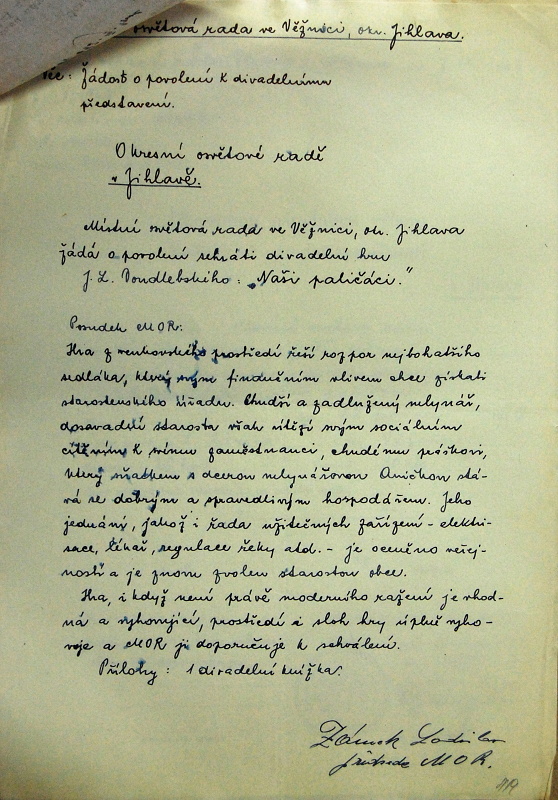 osvětová rada ve Věžnici, okr. Jihlava.
Věc: Žádost o povolení k divadelnímu
představení.
Okresní osvětové radě
v Jihlavě.
Místní osvětová rada ve Věžnici, ok. Jihlava
žádá o povolení sehráti divadelní hru
J. L. Dondlebského: „Naši paličáci."
Posudek MOR:
Hra z venkovského prostředí řeší rozpor nejbohatšího
sedláka, který svým finančním vlivem chce získati
starostenského úřadu. Chudší a zadlužený mlynář,
dosavadní starosta však vítězí svým sociálním
cítěním k svému zaměstnanci, chudému práškovi,
který sňatkem s dcerou mlynářovou Aničkou stá-
vá se dobrým a spravedlivým hospodářem. Jeho
jednání, jakož i řada užitečných zařízení - elektri-
sace, lékař, regulace řeky atd. - je oceněno veřej-
ností a je znovu zvolen starostou obce.
Hra, i když není právě moderního ražení je vhod-
ná a vyhovující, prostředí i sloh hry úplně vyho-
vuje a MOR ji doporučuje k schválení.
Přílohy: 1 divadelní knížka.
Zámek Ladislav
předseda MOR.